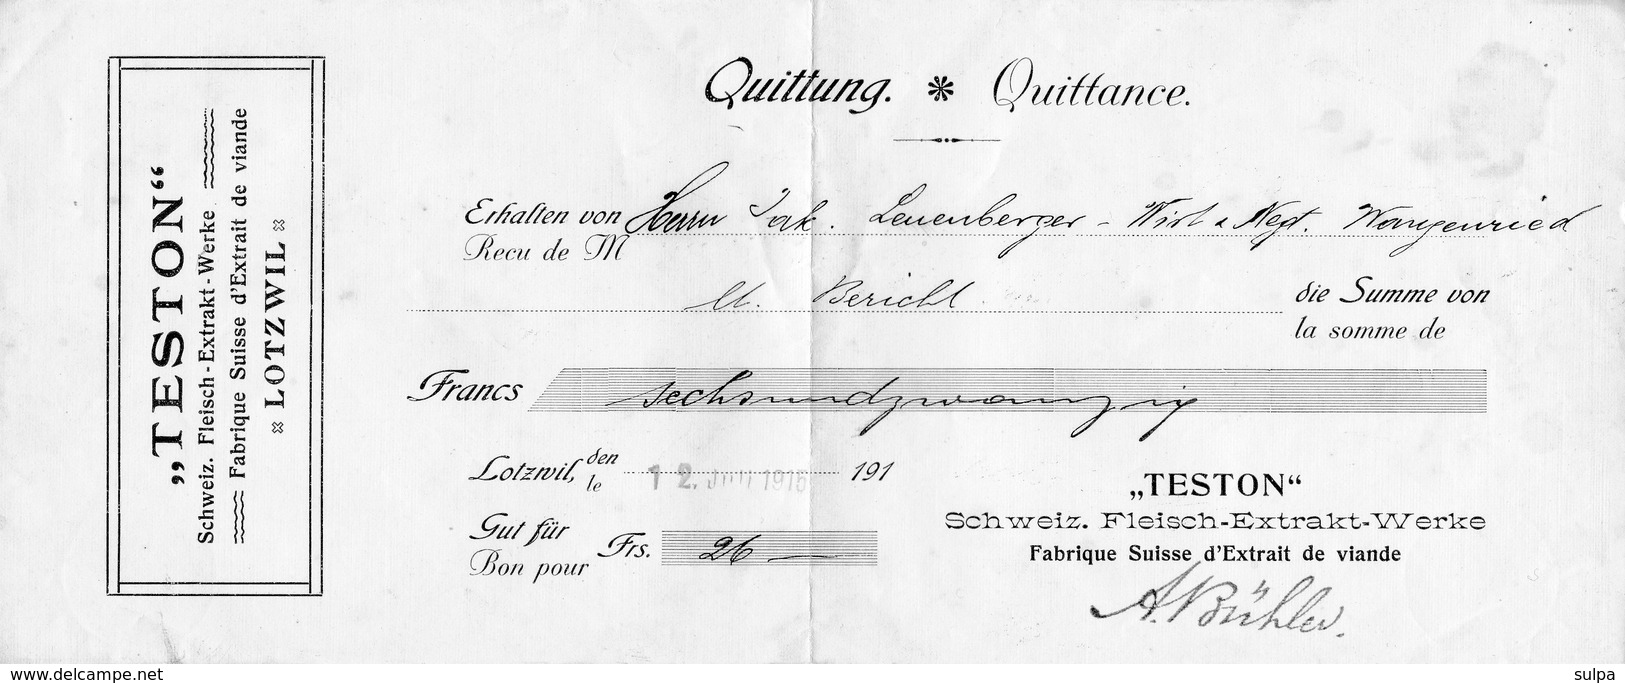 „TESTON“
Schweiz. Fleisch-Extrakt-Werke
Fabrique Suisse d'Extrait de viande
LOTZWIL
Quittung. * Quittance.
Erhalten von Herrn Jak. Leuenberger - Wirt & Negt. Wangenried
Recu de M
Bericht
die Summe von
la somme de
Francs sechsundzwanzig
Lotzwil, den 12. 1915 191
le
Gut für Frs. 26 —
Bon pour
„TESTON“
Schweiz. Fleisch-Extrakt-Werke
Fabrique Suisse d'Extrait de viande
A. Bühler.
www.delcampe.net
sulpa